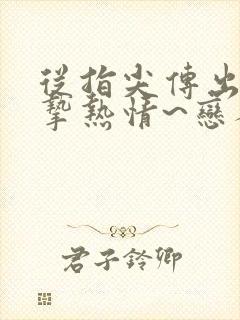 從指尖傳出
摯熱情~戀
君子鈴卿